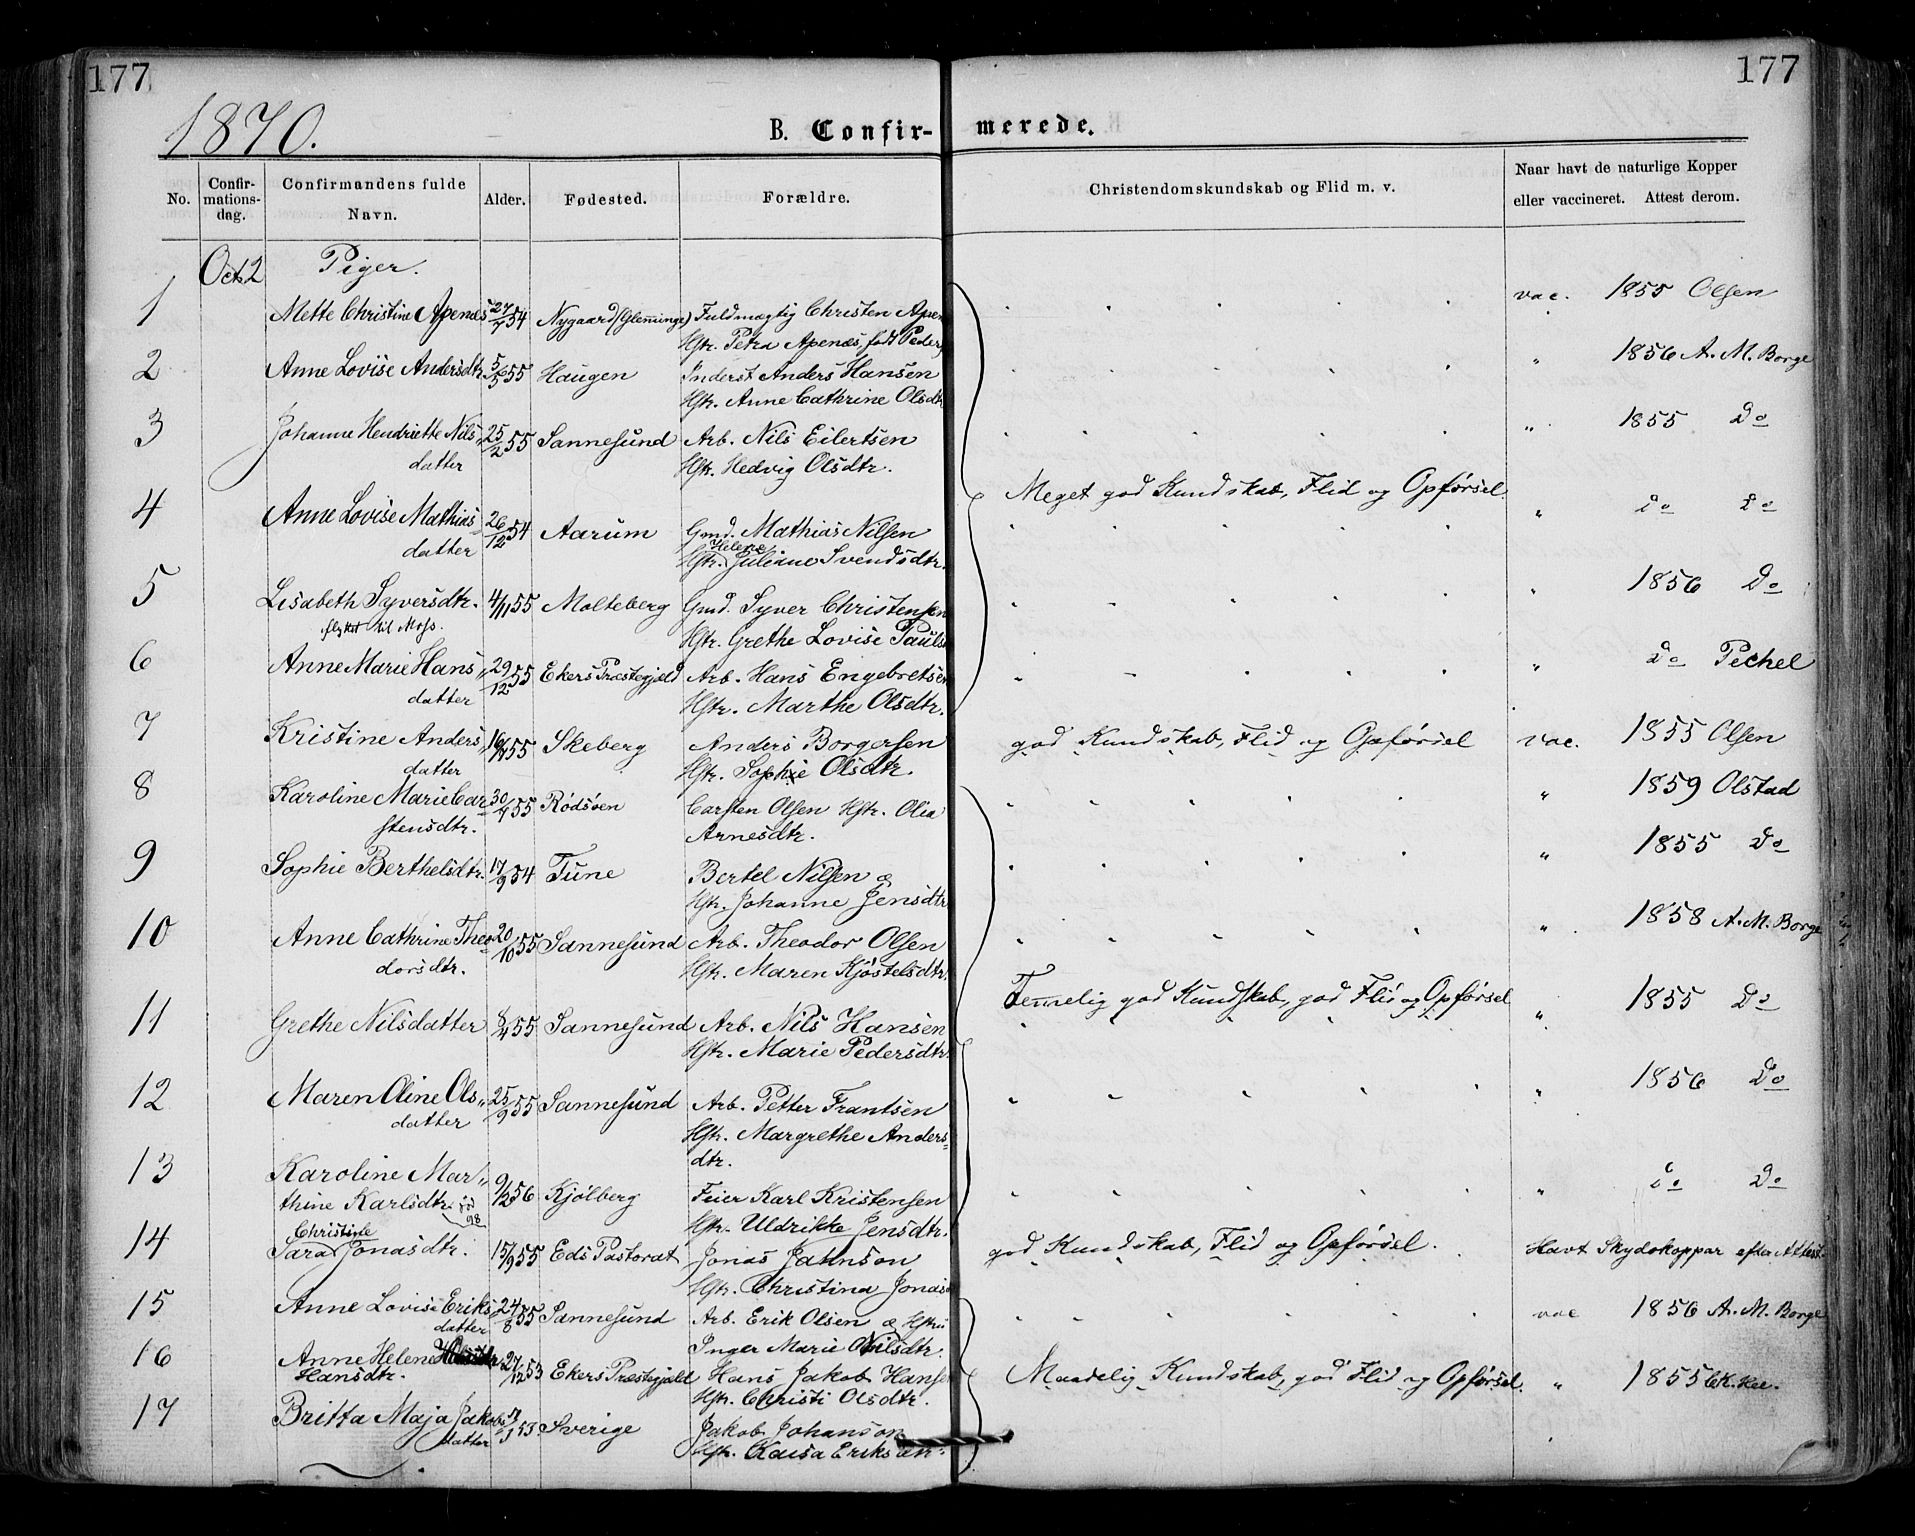 177
177
1870.
B. Confir- merede.
No.
Confir-
mations-
dag.
Confirmandens fulde
Navn.
Alder.
Fødested.
Forældre.
Christendomskundskab og Flid m. v.
Naar havt de naturlige Kopper
eller vaccineret. Attest derom.
Oct 2 Piger.
1 Mette Christine Apenæs 27/7 54 Nygaard (Glemminge) Fuldmægtig Christen Apen vac. 1855 Olsen
Hstr. Petra Apenæs, født Peders
2 Anne Lovise Andersdtr. 5/5 55 Haugen Inderst Anders Hansen " 1856 A. M. Borge
Hstr. Anne Cathrine Olsdtr
3 Johanne Hendriette Nils- 25/2 55 Sannesund Arb. Nils Eilertsen " 1855 Do
datter Hstr. Hedvig Olsdtr.
Meget god Kundskab, Flid og Opførsel.
4 Anne Lovise Mathias- 26/12 54 Aarum Gmd. Mathias Nilsen " Do Do
datter Hstr. Helene Juliane Svendsdtr.
5 Lisabeth Syversdtr. 4/11 55 Molteberg Gmd. Syver Christensen " 1856 Do
flyttet til Moss. Hstr. Grethe Lovise Pauls
6 Anne Marie Hans- 29/12 55 Ekers Præstegjeld Arb. Hans Engebretsen " Do Pechel
datter Hstr. Marthe Olsdtr.
7 Kristine Anders- 55 Skeberg Anders Borgersen god Kundskab, Flid og Opførsel vac. 1855 Olsen
datter Hstr. Sophie Olsdtr.
8 Karoline Marie Car- 55 Rødsøen Carsten Olsen Hstr. Olia " 1859 Olstad
stensdtr. Arnesdtr.
9 Sophie Berthelsdtr. 17/9 54 Tune Bertel Nilsen & " 1855 Do
Hstr. Johanne Jensdtr
10 Anne Cathrine Theo- 20/10 55 Sannesund Arb. Theodor Olsen " 1858 A. M. Borge
dorsdtr. Hstr. Maren Kjøstelsdtr.
Temmelig god Kundskab, god Flid og Opførsel
11 Grethe Nilsdatter 55 Sannesund Arb. Nils Hansen " 1855 Do
Hstr. Marie Pedersdtr.
12 Maren Oline Ols- 25/9 55 Sannesund Arb. Petter Frantsen " 1856 Do
datter Hstr. Margrethe Anders-
dtr.
13 Karoline Mar- 9/12 56 Kjølberg Feier Karl Kristensen " Do Do
thine Karlsdtr. 98 Hstr. Uldrikke Jensdtr.
14 Christine
Sara Jonasdtr. 15/9 55 Eds Pastorat Jonas Jahnson god Kundskab, Flid og Opførsel. Havt Skydskoppar efter Attest
Hstr. Christina Jonas
15 Anne Lovise Eriks- 24/8 55 Sannesund Arb. Erik Olsen & Hstru vac 1856 A. M. Borge
datter Inger Marie Nilsdtr.
16 Anne Helene 27/12 53 Ekers Præstegjeld Hans Jakob Hansen Maadelig Kundskab, god Flid og Opførsel. " 1855
Hansdtr. Hstr. Christi Olsdtr.
17 Britta Maja Jakobs- 53 Sverige Jakob Johanson
datter Hstr. Kaisa Eriksdtr.